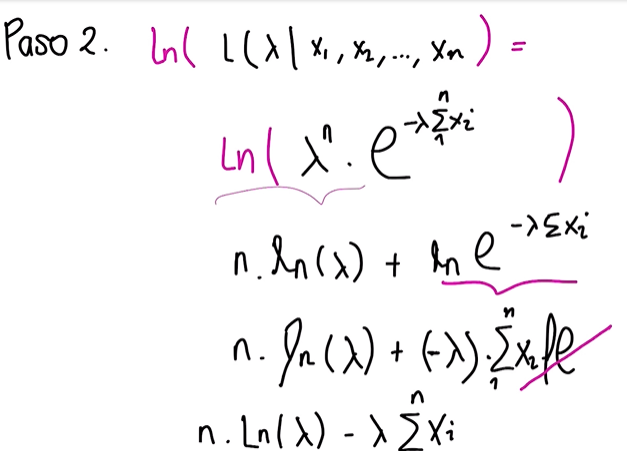 Paso 2. ln( L(λ | x₁, x₂, ..., xₙ ) =
Ln( λⁿ · e^(-λ Σ₁ⁿ xᵢ) )
n. ln(λ) + ln e^(-λ Σ xᵢ)
n. ln(λ) + (-λ). Σ₁ⁿ xᵢ
n. Ln(λ) - λ Σⁿ xᵢ